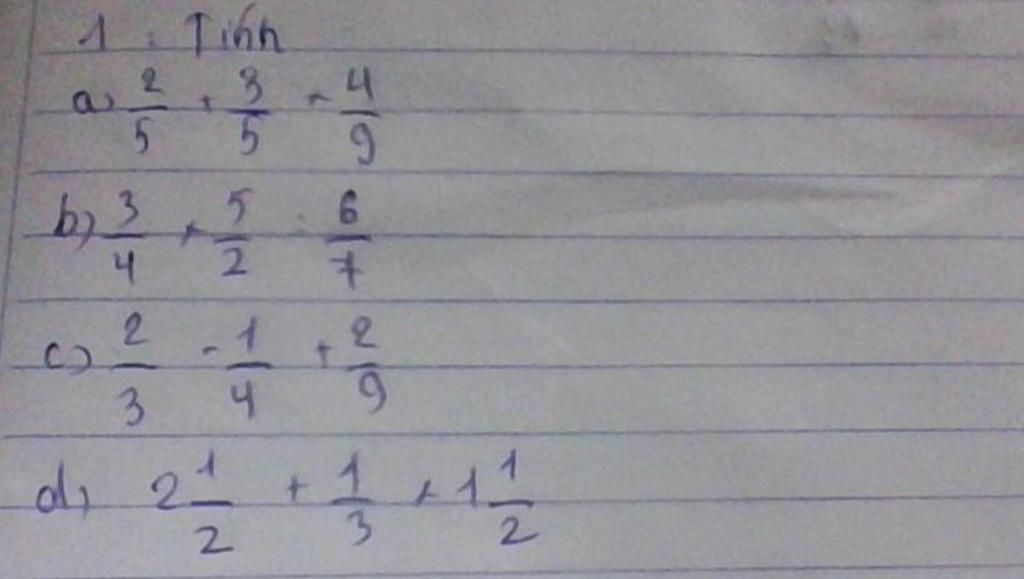 1 : Tính
a) 2/5 + 3/5 - 4/9
b) 3/4 + 5/2 : 6/7
c) 2/3 - 1/4 + 2/9
d) 2 1/2 + 1/3 + 1 1/2